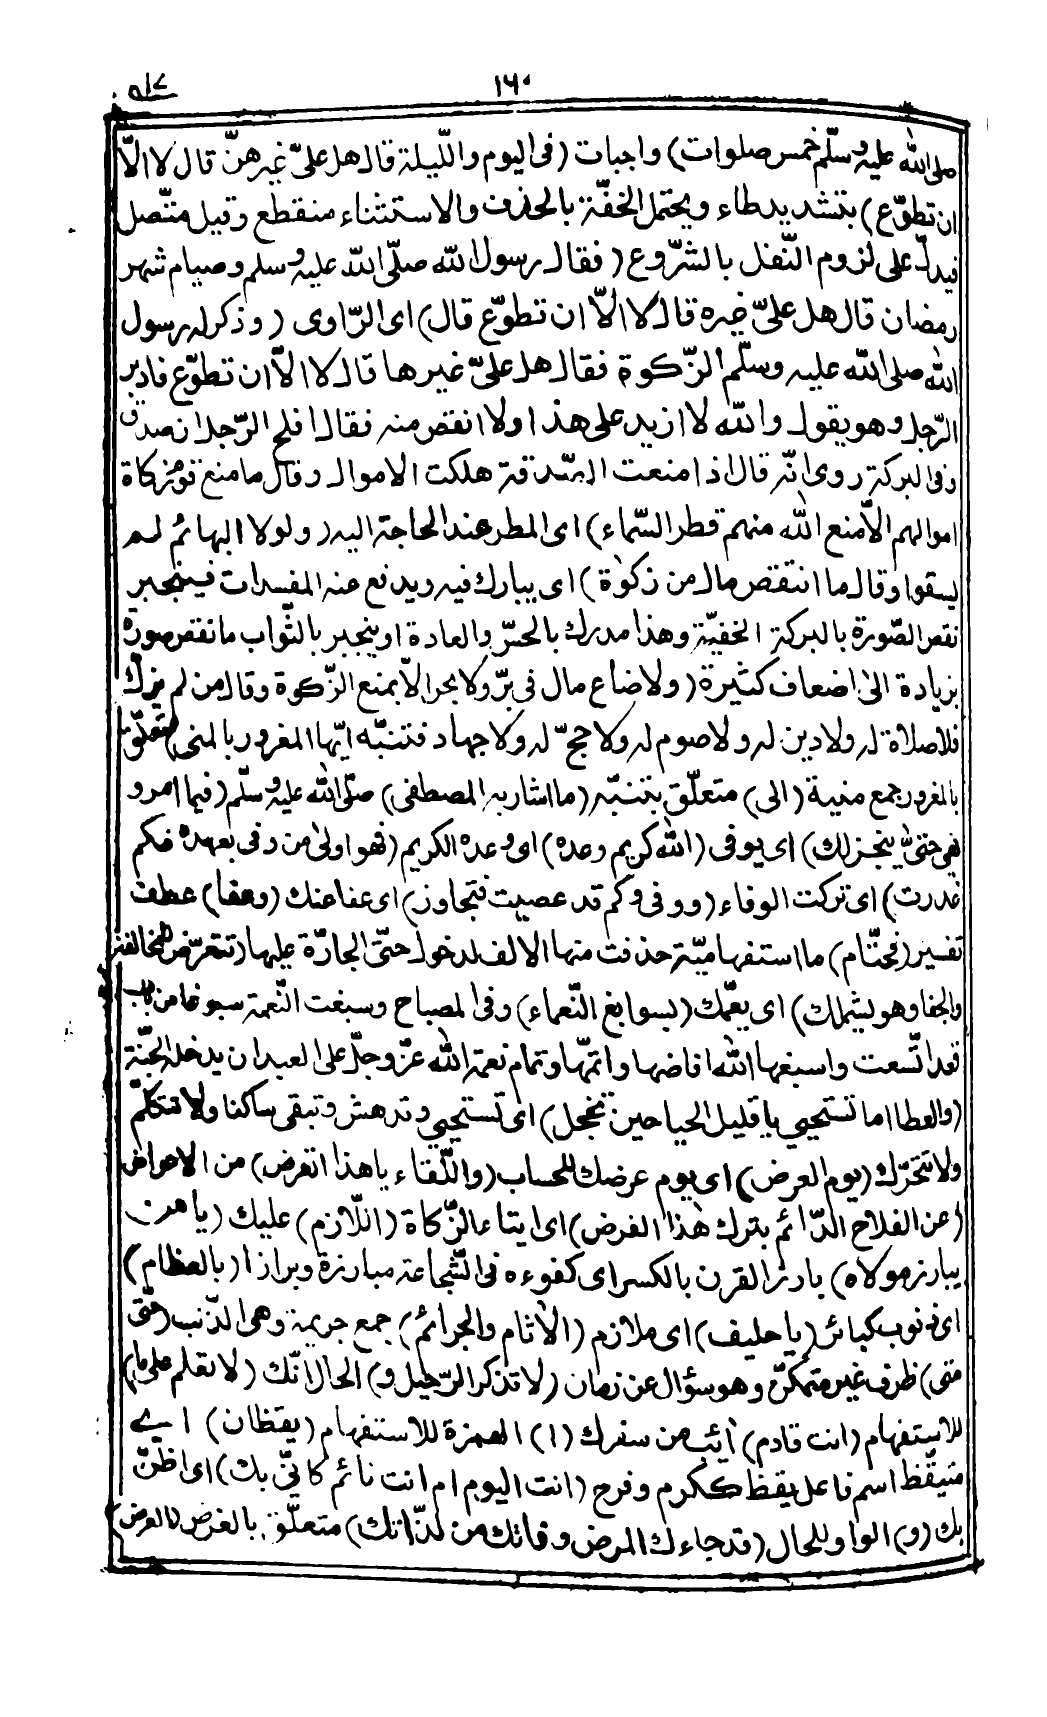 ١٦٠
صلى الله عليه وسلّم خمس صلوات) واجبات (فى اليوم والليلة قال هل علىّ غيرهنّ قال لا الاّ
ان تطوّع) بتشديد طاء ويحتمل الخفّة بالحذف والاستثناء منقطع وقيل متّصل
فيدلّ على لزوم النّفل بالشّروع (فقال رسول الله صلّى الله عليه وسلم وصيام شهر
رمضان قال هل علىّ غيره قال لا الاّ ان تطوّع قال) اى الرّاوى (وذكر له رسول
الله صلى الله عليه وسلّم الزّكوة فقال هل علىّ غيرها قال لا الاّ ان تطوّع فادبر
الرّجل وهو يقول والله لا ازيد على هذا ولا انقص منه فقال افلح الرّجل ان صدق
وفى البركة روى انّه قال اذا منعت الصّدقة هلكت الاموال وقال ما منع قوم زكاة
اموالهم الاّ منع الله منهم قطر السّماء) اى المطر عند الحاجة اليه (ولولا البهائم لم
يسقوا وقال ما انتقص مال من زكوٰة) اى يبارك فيه ويدفع عنه المفسدات فينجبر
نقص الصّورة بالبركة الخفيّة وهذا مدرك بالحسّ والعادة او ينجبر بالثّواب ما نقص صورة
بزيادة الىٰ اضعاف كثيرة (ولا ضاع مال فى برّ ولا بحر الاّ بمنع الزّكوة وقال من لم يزك
فلا صلاة له ولا دين له ولا صوم له ولا حجّ له ولا جهاد فتنبّه ايّها المغرور بالمنى) متعلّق
بالمغرور جمع منية (الى) متعلّق بتنبّه (ما اشار به المصطفى) صلّى الله عليه وسلّم (فيما امر و
نهى حتىّ ينجز لك) اى يوفى (الله كريم وعده) اى وعده الكريم (فهو اولىٰ من وفى بعهده فكم
غدرت) اى تركت الوفاء (ووفى وكم قد عصيت فتجاوز) اى عفا عنك (وعفا) عطف
تفسير (فحتّام) ما استفهاميّة حذفت منها الالف لدخول حتىّ الجارّة عليها (تتعرّض للمخالفة
والجفا وهو يشملك) اى يعمّك (بسوابغ النّعماء) وفى المصباح وسبغت النّعمة سبوغا من باب
قعد اتّسعت واسبغها الله افاضها واتمّها وتمام نعمة الله عزّ وجلّ على العبد ان يدخله الجنّة
(والعطا اما تستحيي يا قليل الحيا حين تخجل) اى تستحيي وتدهش وتبقى ساكنا ولا تتكلّم
ولا تتحرّك (يوم العرض) اى يوم عرضك للحساب (واللّقاء يا هذا اتعرض) من الاعراض
(عن الفلاح الدّائم بترك هٰذا الفرض) اى ايتاء الزّكاة (اللّازم) عليك (يا من
يبارز مولاه) بارز القرن بالكسر اى كفوءه فى الشّجاعة مبارزة وبرازا (بالعظام)
اى ذنوب كبائر (يا حليف) اى ملازم (الاٰثام والجرائم) جمع جريمة وهى الذّنب (حتّى
متى) ظرف غير متمكنّ وهو سؤال عن زمان (لا تذكر الرّحيل و) الحال انّك (لا تعلم على ما)
للاستفهام (انت قادم) اٰئب من سفرك (ا) الهمزة للاستفهام (يقظان) اى
متيقّظ اسم فاعل يقظ ككرم وفرح (انت اليوم ام انت نائم كانّى بك) اى اظنّ
بك (و) الواو للحال (قد جاءك المرض وفاتك من لذّاتك) متعلّق بالغرض (الغرض